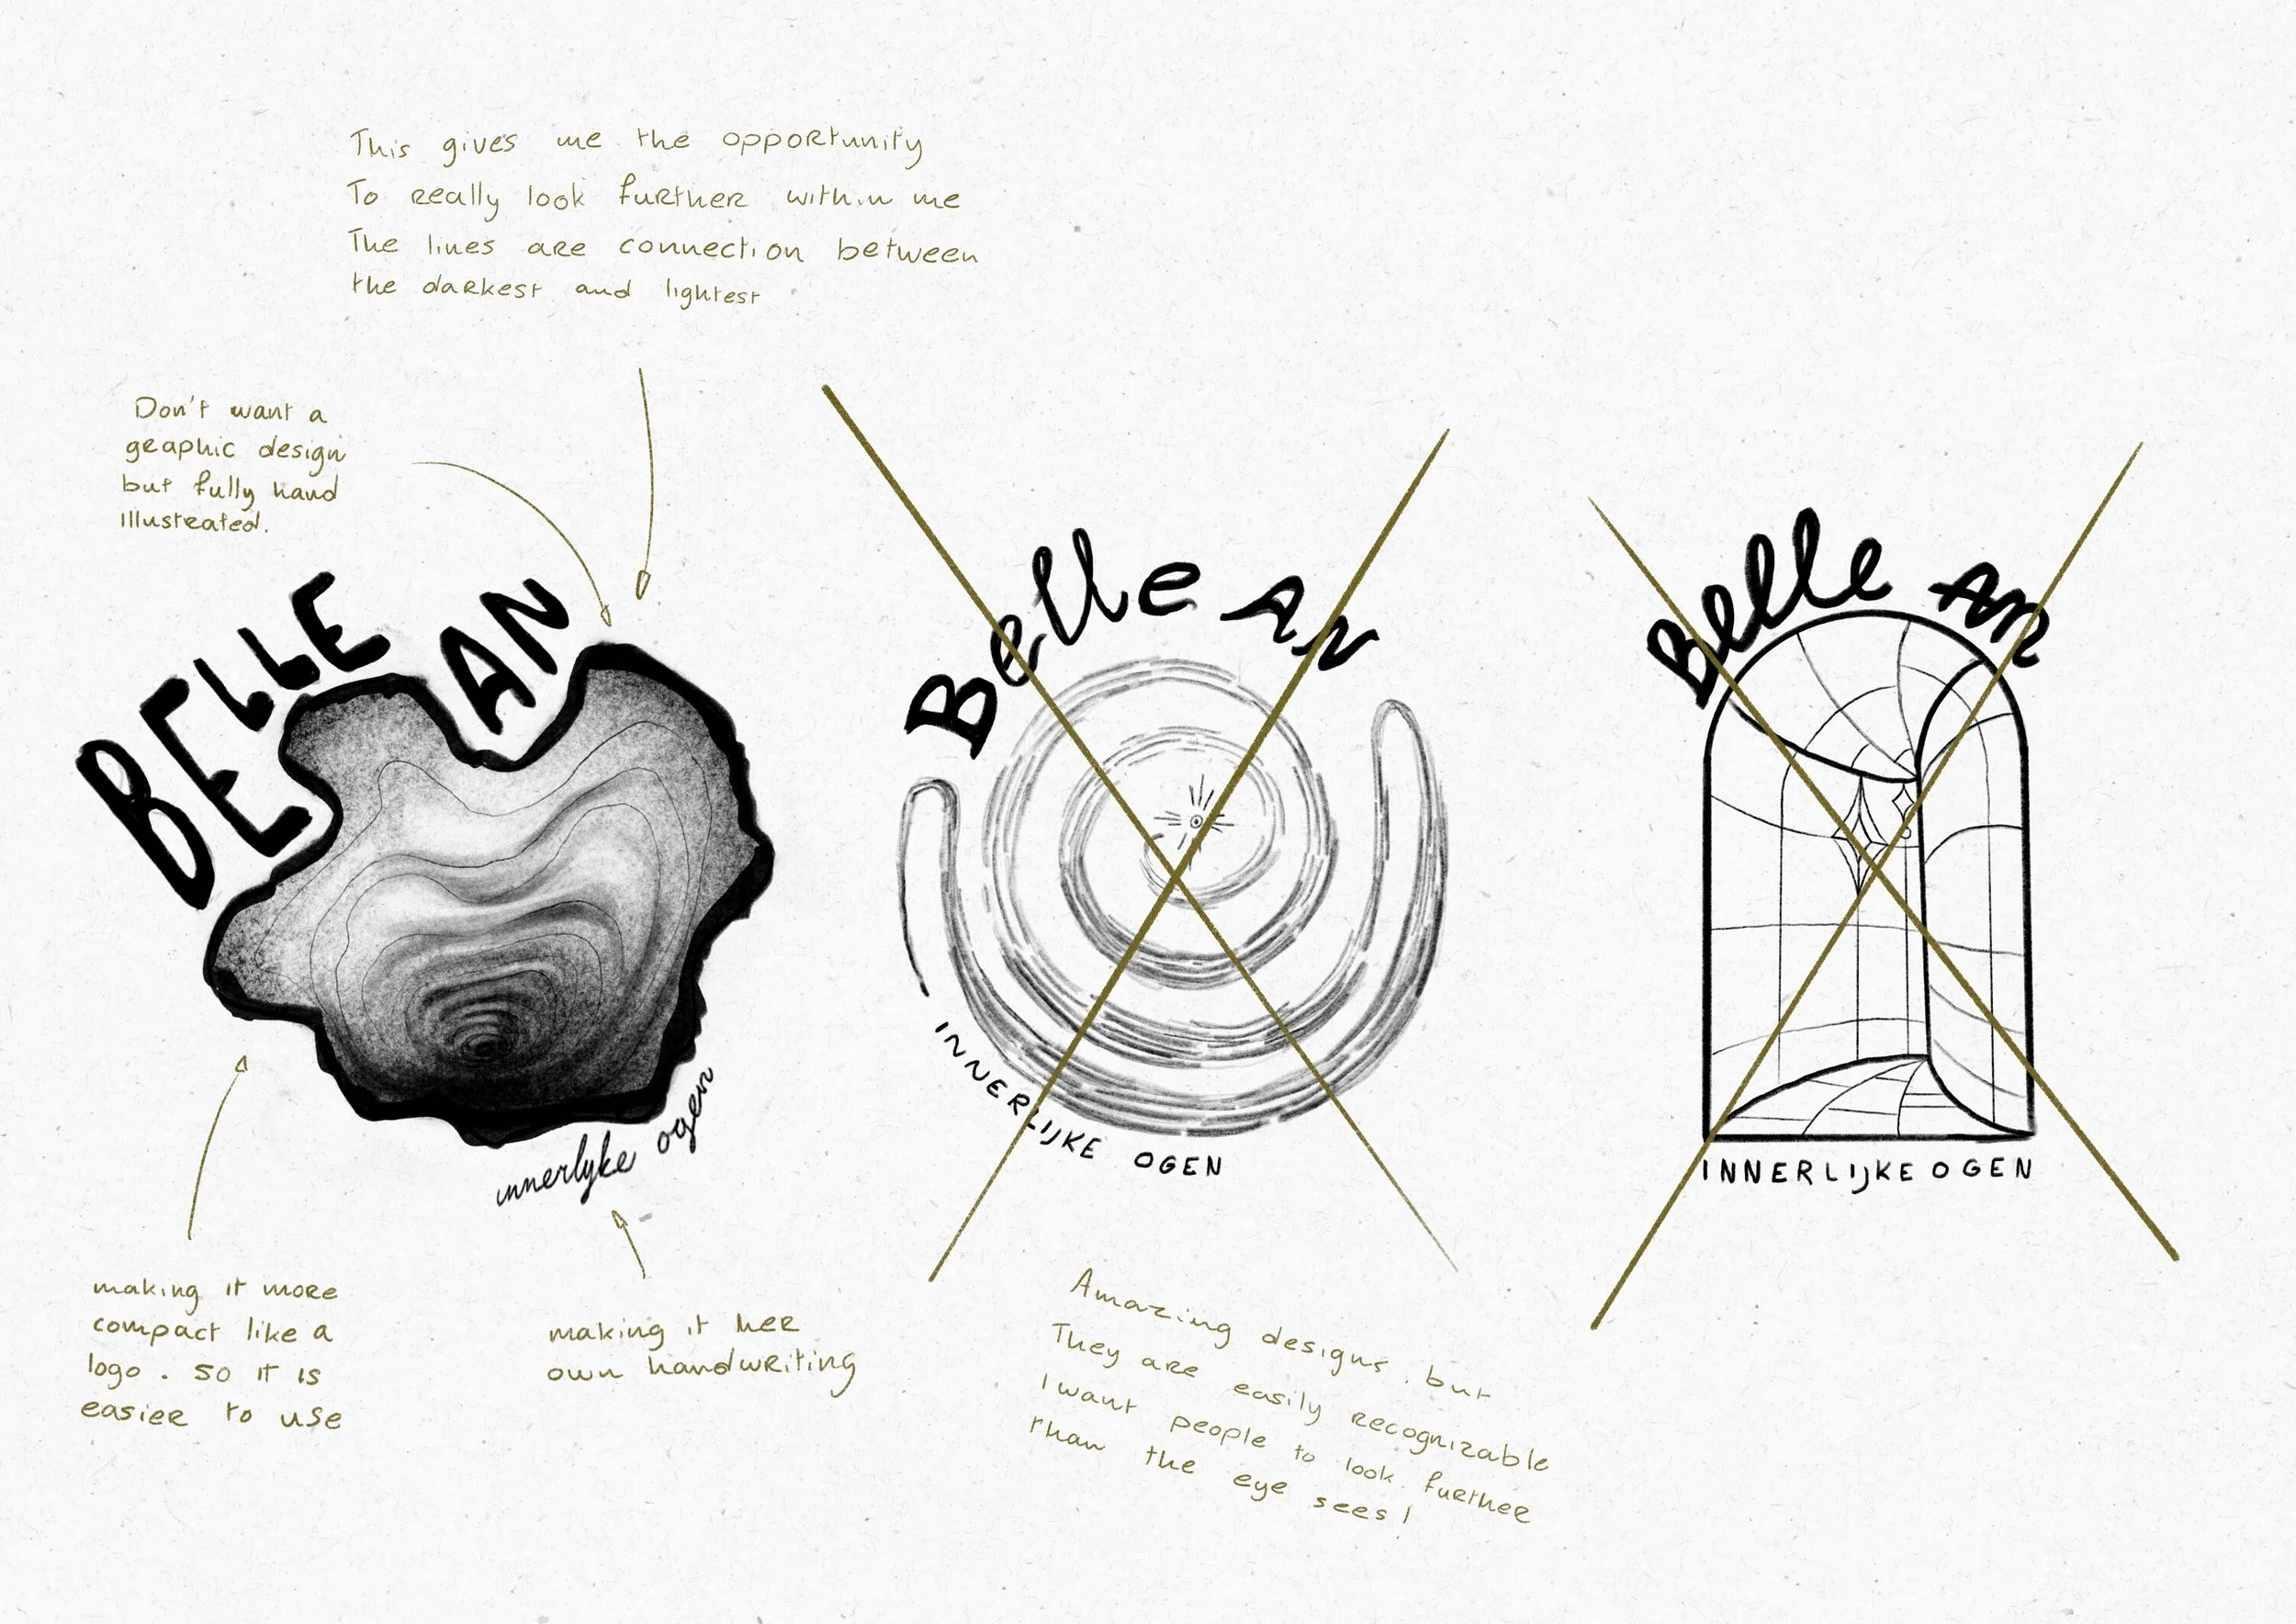 This gives me the opportunity
To really look further within me
The lines are connection between
the darkest and lightest
Don't want a
graphic design
but fully hand
illustrated.
BELLE AN
innerlyke ogen
making it more
compact like a
logo. so it is
easier to use
making it her
own handwriting
Belle AN
INNERLIJKE OGEN
Amazing designs. but
They are easily recognizable
I want people to look further
than the eye sees!
Belle An
INNERLIJKE OGEN